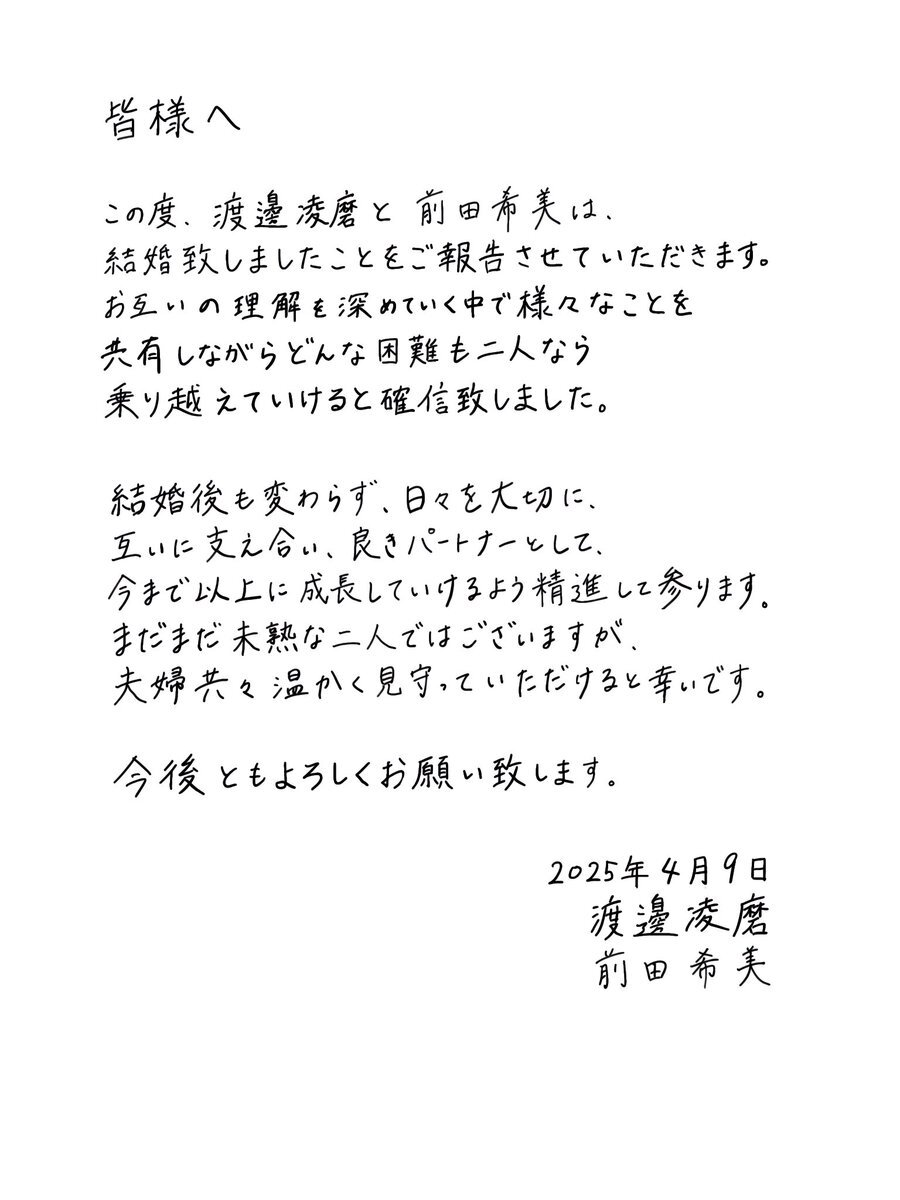 皆様へ
この度、渡邊凌磨と前田希美は、
結婚致しましたことをご報告させていただきます。
お互いの理解を深めていく中で様々なことを
共有しながらどんな困難も二人なら
乗り越えていけると確信致しました。
結婚後も変わらず、日々を大切に、
互いに支え合い、良きパートナーとして、
今まで以上に成長していけるよう精進して参ります。
まだまだ未熟な二人ではございますが、
夫婦共々温かく見守っていただけると幸いです。
今後ともよろしくお願い致します。
2025年4月9日
渡邊凌磨
前田希美